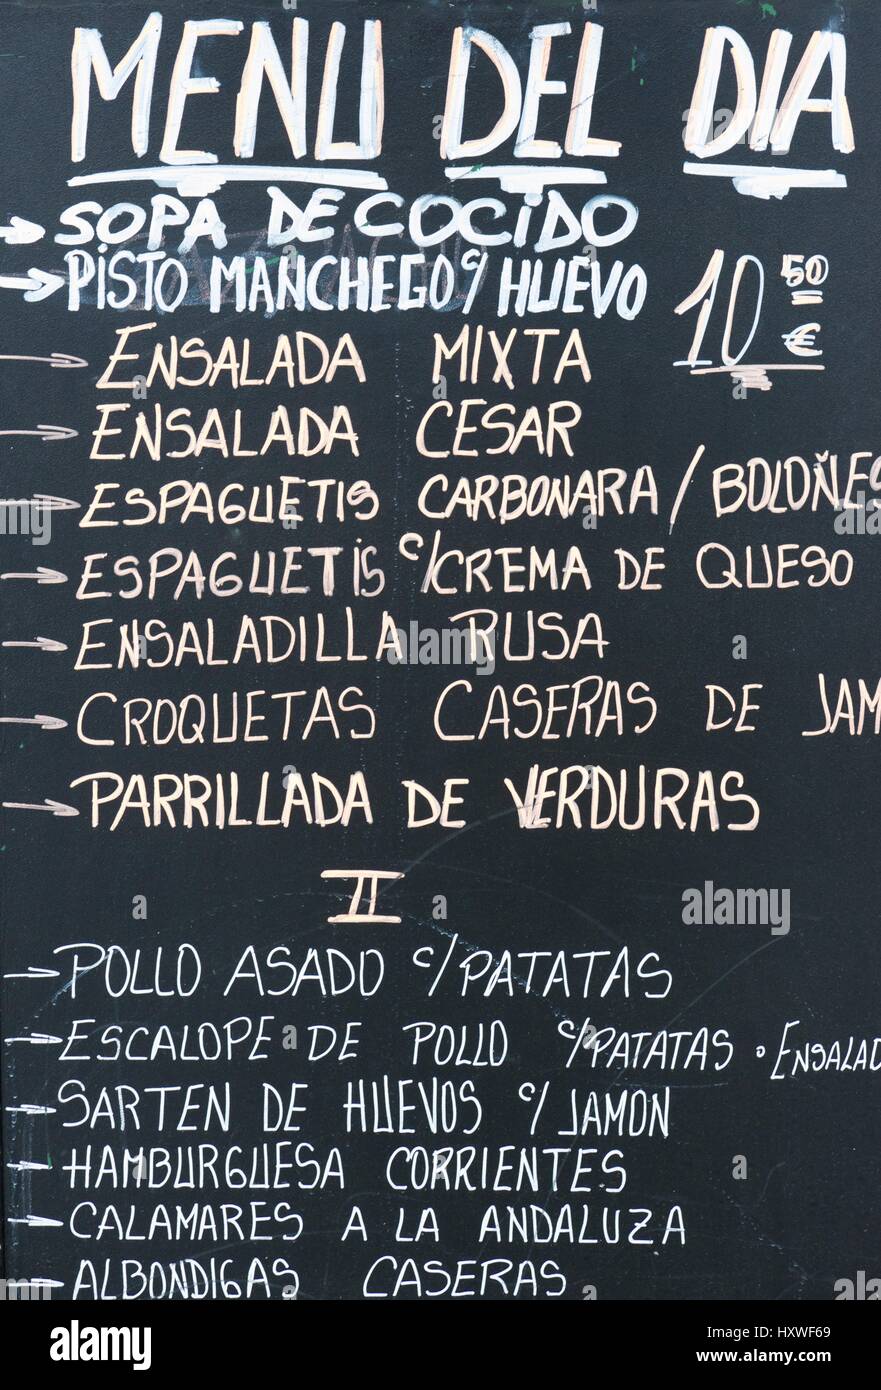 MENU DEL DIA
SOPA DE COCIDO
PISTO MANCHEGO C/ HUEVO
10 50 €
ENSALADA MIXTA
ENSALADA CESAR
ESPAGUETIS CARBONARA / BOLOÑES
ESPAGUETIS C/ CREMA DE QUESO
ENSALADILLA RUSA
CROQUETAS CASERAS DE JAM
PARRILLADA DE VERDURAS
II
POLLO ASADO C/ PATATAS
ESCALOPE DE POLLO C/ PATATAS o ENSALAD
SARTEN DE HUEVOS C/ JAMON
HAMBURGUESA CORRIENTES
CALAMARES A LA ANDALUZA
ALBONDIGAS CASERAS
alamy stock photo
HXWF69
www.alamy.com